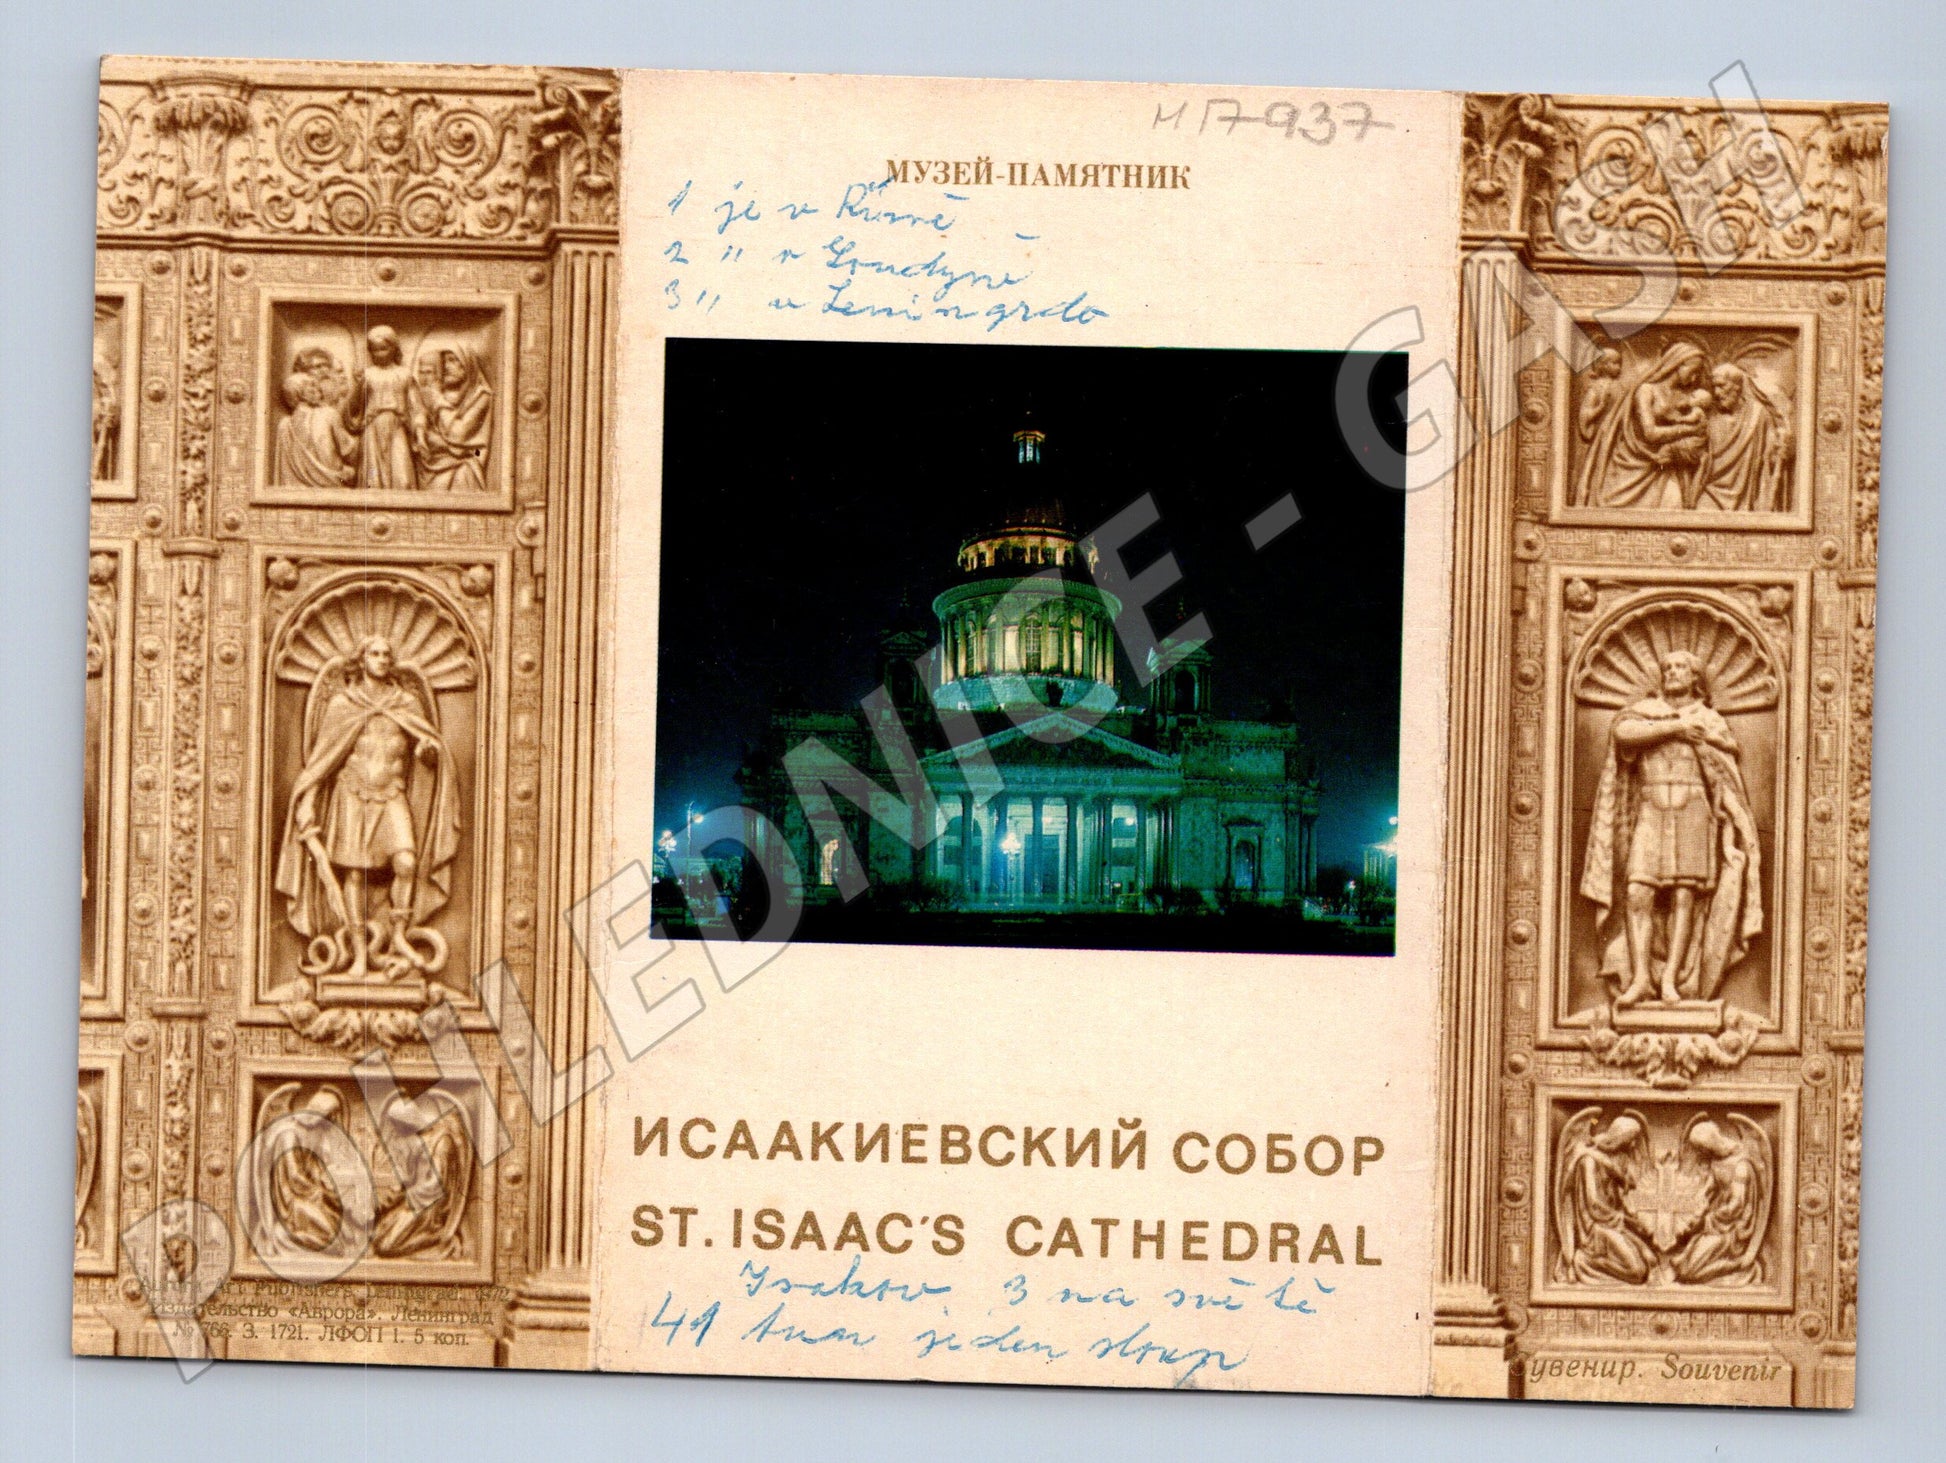 МП-937
МУЗЕЙ-ПАМЯТНИК
1 je v Římě
2 " v Londyně
3 " v Leningrdo
ИСААКИЕВСКИЙ СОБОР
ST. ISAAC'S CATHEDRAL
3 na světě
41 tun jeden sloup
Art Publishers. Leningrad. 1972
Издательство «Аврора». Ленинград
№ 766. З. 1721. ЛФОП 1. 5 коп.
Сувенир. Souvenir
POHLEDNICE - GASH